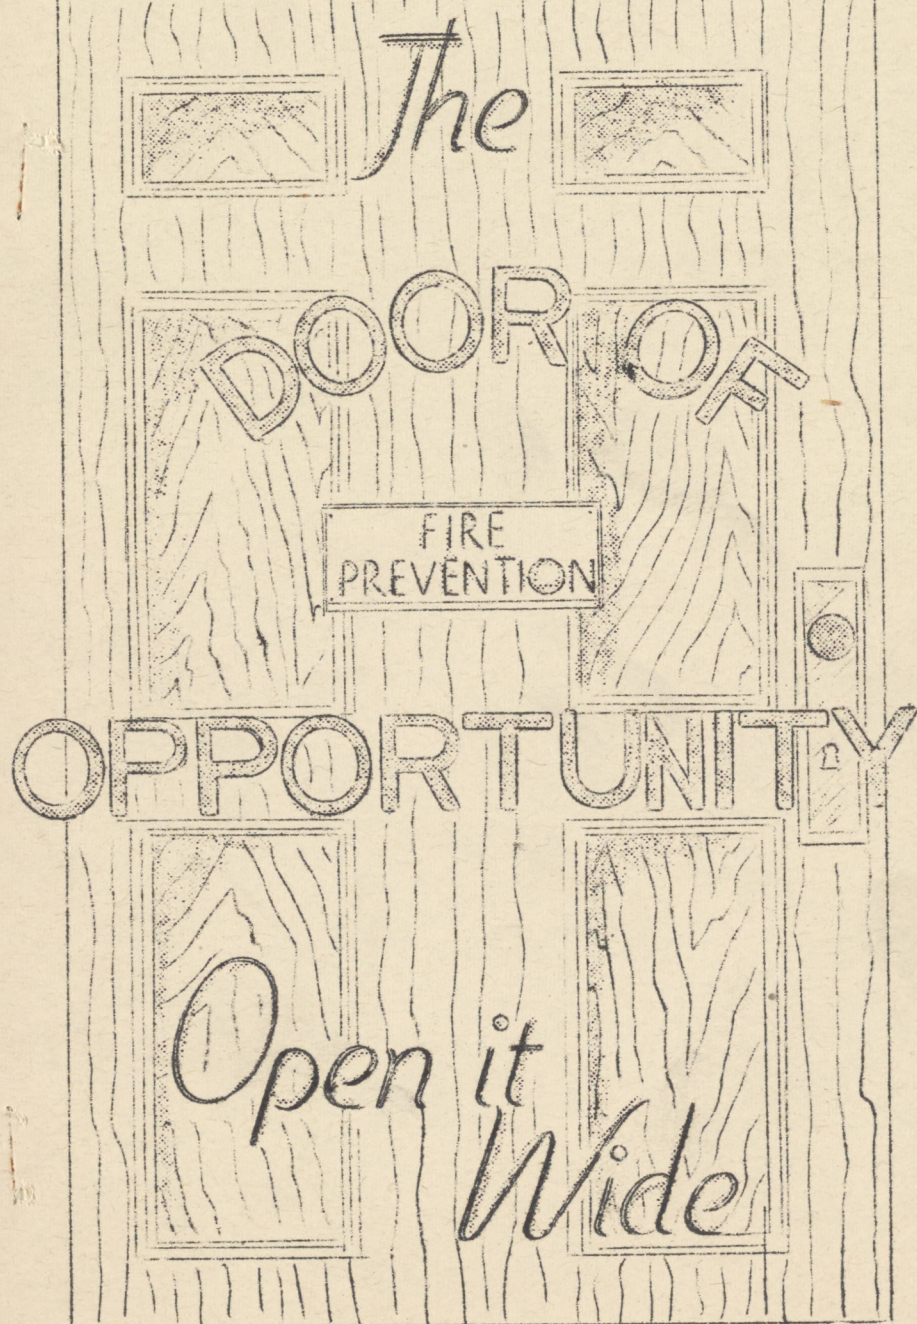 The
DOOR OF
FIRE
PREVENTION
OPPORTUNITY
Open it
Wide